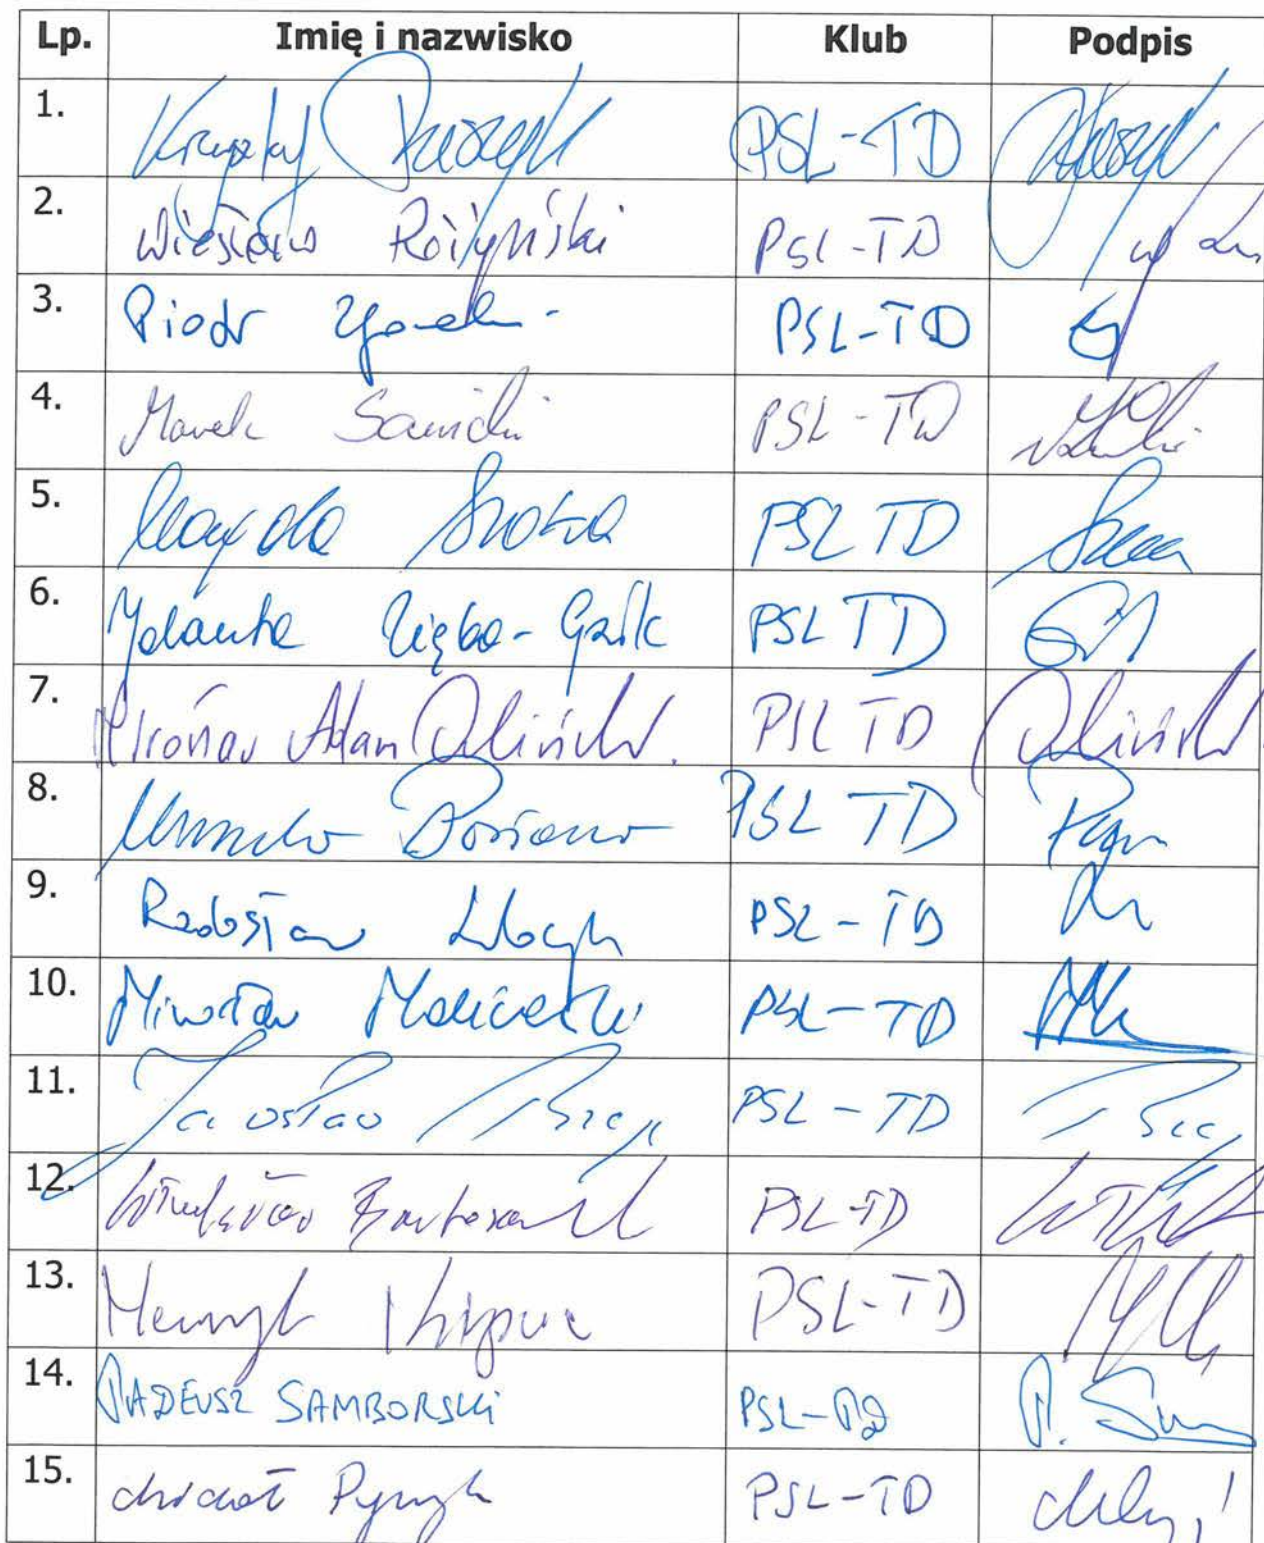 Lp. Imię i nazwisko Klub Podpis
1. Krzysztof Paszyk PSL-TD Paszyk
2. Wiesław Różyński PSL-TD
3. Piotr Zgorzelski PSL-TD
4. Marek Sawicki PSL-TD
5. Magda Sroka PSL TD
6. Jolanta Zięba-Gzik PSL TD
7. Mirosław Adam Orliński. PSL TD Orliński.
8. Urszula PSL TD
9. Radosław Lubczyk PSL-TD
10. Mirosław Maliszewski PSL-TD
11. Jarosław Rzepa PSL-TD
12. Władysław Bartoszewski PSL-TD
13. Henryk PSL-TD
14. TADEUSZ SAMBORSKI PSL-TD T.
15. Michał Pyrzyk PSL-TD